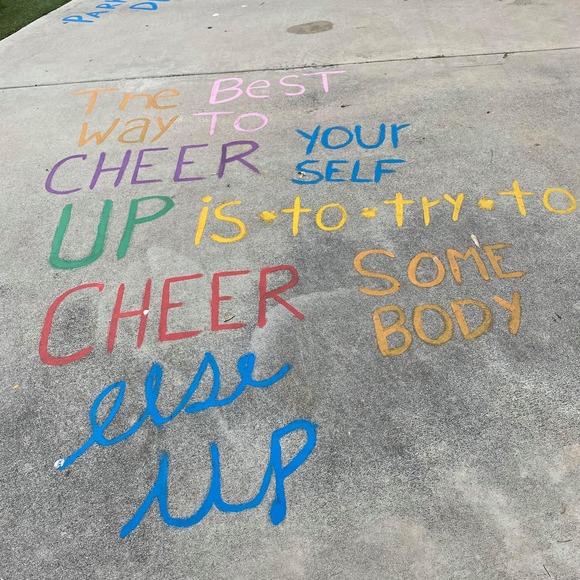 The BEST
WAY TO
CHEER YOUR
SELF
UP is•to•try•to
CHEER SOME
BODY
else
UP